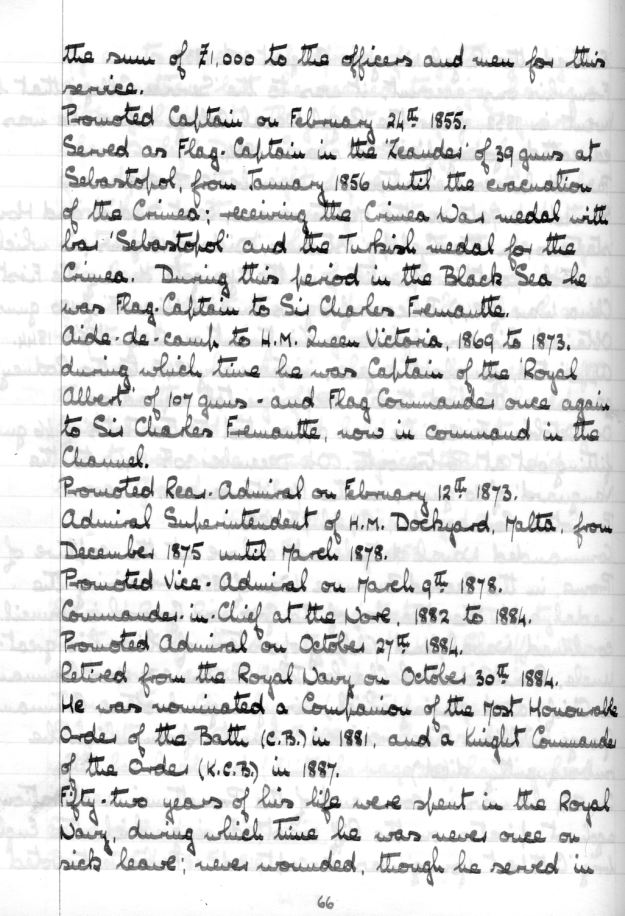 the sum of £1,000 to the officers and men for this
service.
Promoted Captain on February 24th 1855.
Served as Flag-Captain in the 'Leander' of 39 guns at
Sebastopol, from January 1856 until the evacuation
of the Crimea; receiving the Crimea War medal with
bar 'Sebastopol' and the Turkish medal for the
Crimea. During this period in the Black Sea he
was Flag-Captain to Sir Charles Fremantle.
Aide-de-camp to H.M. Queen Victoria, 1869 to 1873.
during which time he was Captain of the 'Royal
Albert' of 107 guns - and Flag Commander once again
to Sir Charles Fremantle, now in command in the
Channel.
Promoted Rear-Admiral on February 12th 1873.
Admiral Superintendent of H.M. Dockyard, Malta, from
December 1875 until March 1878.
Promoted Vice-Admiral on March 9th 1878.
Commander-in-Chief at the Nore, 1882 to 1884.
Promoted Admiral on October 27th 1884.
Retired from the Royal Navy on October 30th 1884.
He was nominated a Companion of the Most Honourable
Order of the Bath (C.B.) in 1881, and a Knight Commander
of the Order (K.C.B.) in 1887.
Fifty-two years of his life were spent in the Royal
Navy, during which time he was never once on
sick leave; never wounded, though he served in
66